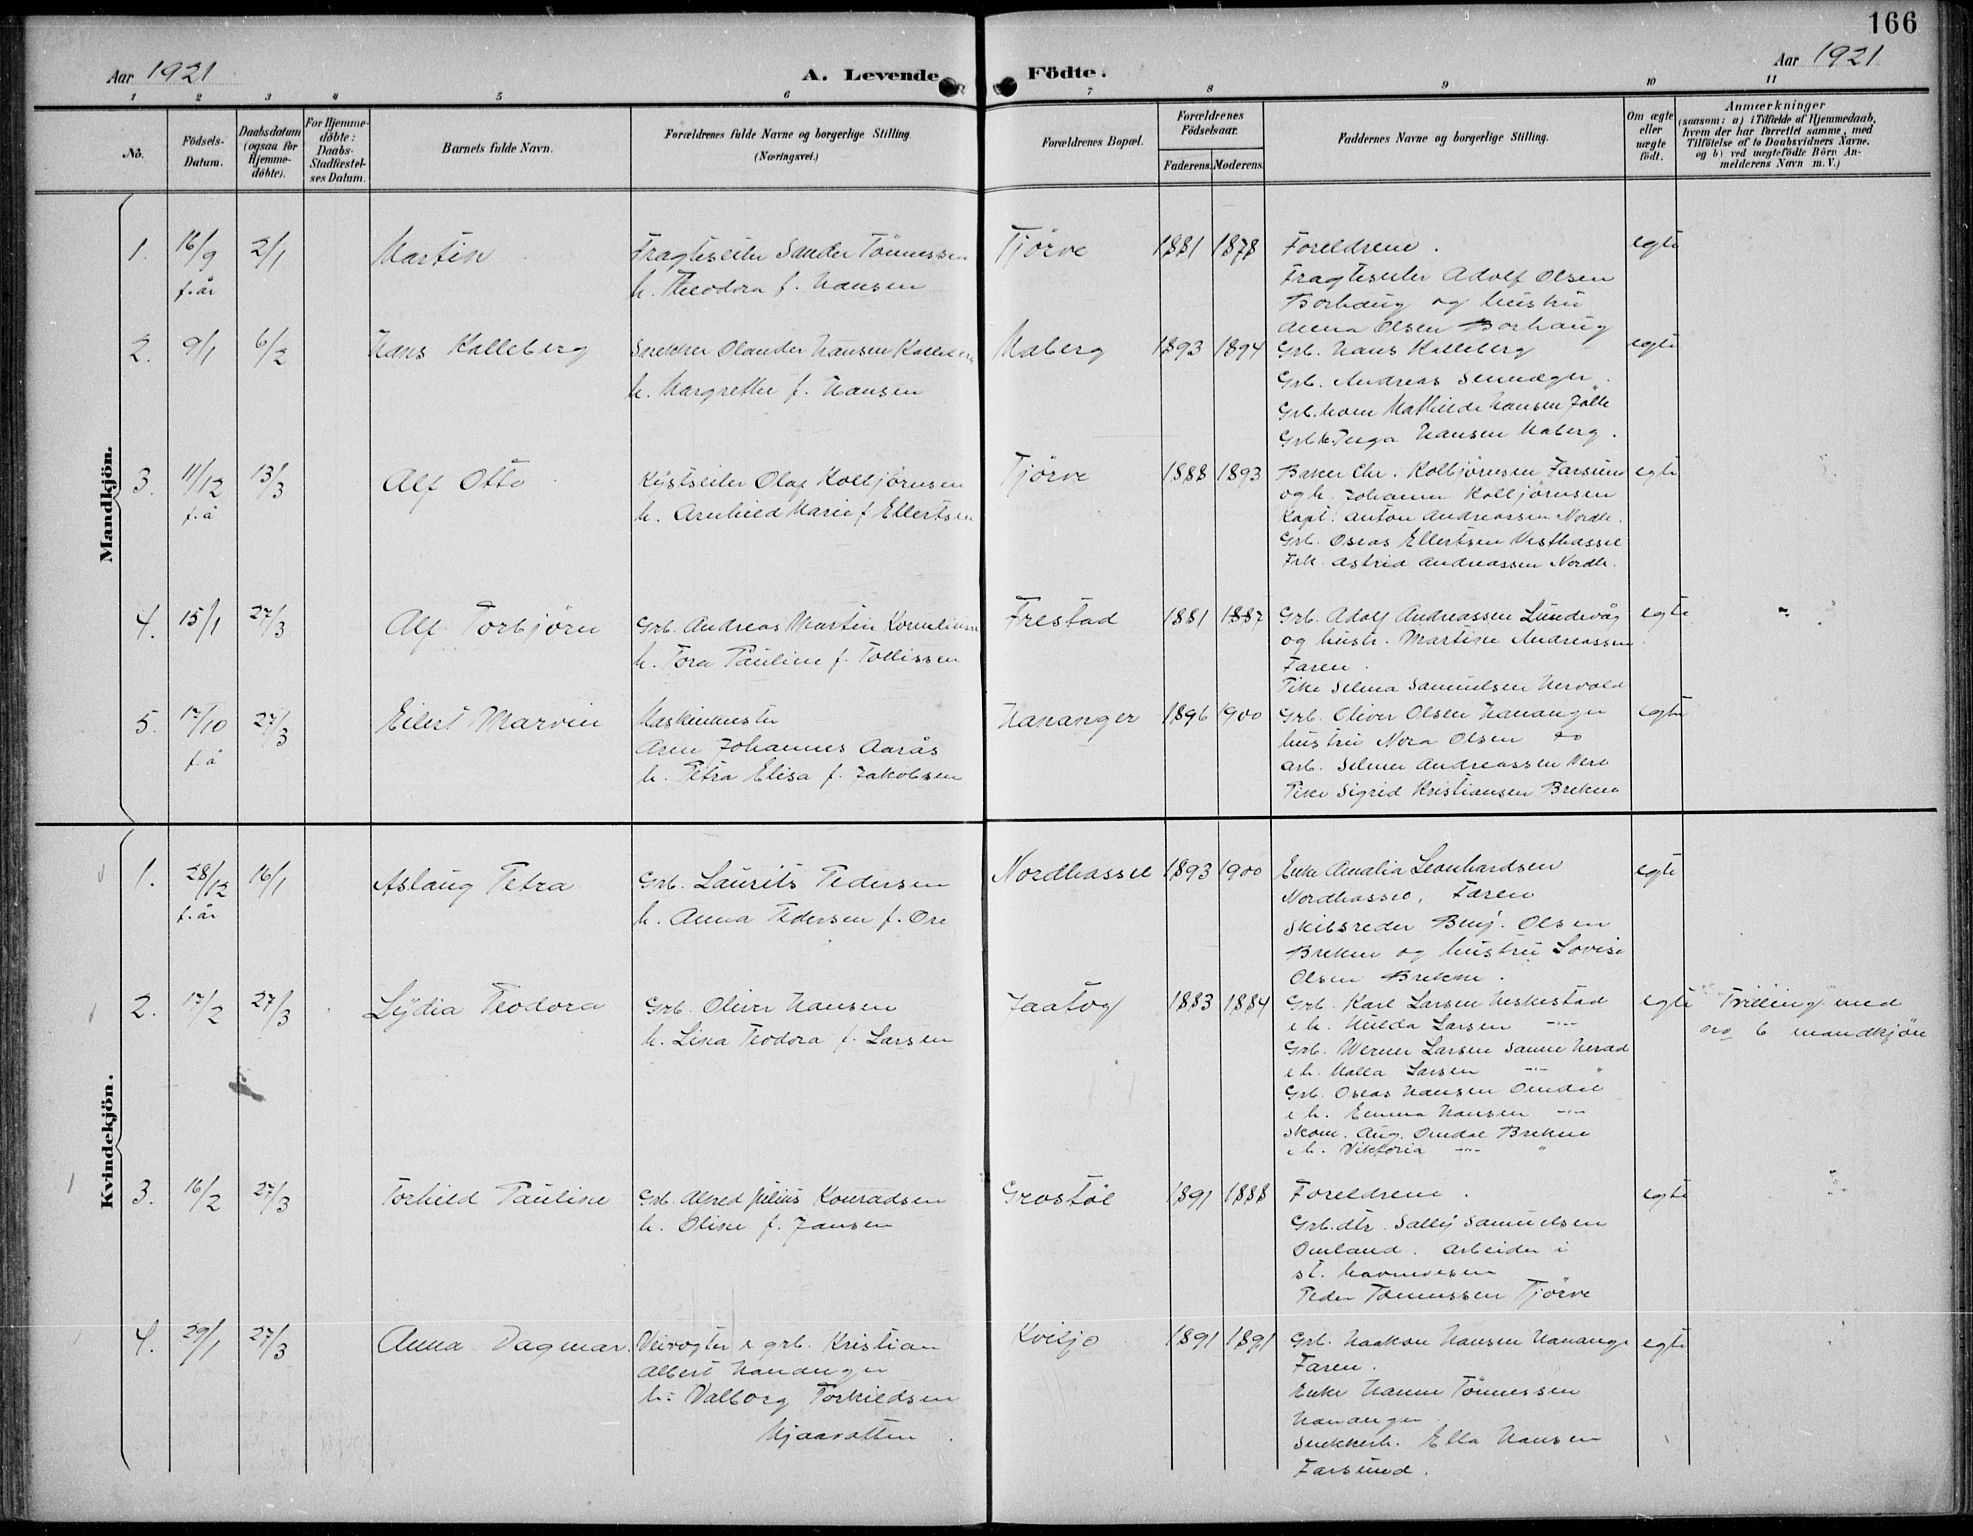 166
Aar 1921
A. Levende
Födte.
Aar 1921
1 2 3 4 5 6 7 8 9 10 11
No.
Födsels-
Datum.
Daabsdatum
(ogsaa for
Hjemme-
döbte).
For Hjemme-
döbte:
Daabs-
Stadfæstel-
ses Datum.
Barnets fulde Navn.
Forældrenes fulde Navne og borgerlige Stilling.
(Næringsvei.)
Forældrenes Bopæl.
Forældrenes
Födselsaar.
Faderens. Moderens.
Faddernes Navne og borgerlige Stilling.
Om ægte
eller
uægte
födt.
Anmærkninger
(saasom: a) i Tilfælde af Hjemmedaab,
hvem der har forrettet samme, med
Tilföielse af to Daabsvidners Navne.
og b) ved uægtefödte Börn An-
melderens Navn m. V.)
Mandkjön.
1. 16/9 2/1 Martin Fragtseiler Sander Tönnessen Tjörve 1881 1878 Foreldrene. egte
f. år h. Theodora f. Hansen Fragtseiler Adolf Olsen
Borhaug og hustru
Anna Olsen Borhaug
2. 9/1 6/2 Hans Kalleberg Snekker Olander Hansen Kalleberg Maberg 1893 1894 Grb. Hans Kalleberg egte
h. Margrethe f. Hansen Grb. Andreas
Grb. kone Mathilde Hansen Jölle
Grb.k. Inga Hansen Maberg.
3. 11/12 13/3 Alf Otto Kystseiler Olaf Kolbjörnsen Tjörve 1888 1893 Baker Chr. Kolbjörnsen Farsund egte
f. å h. Arnhild Marie f Ellertsen og h. Johanne Kolbjörnsen
Kapt. Anton Andreassen Nordh.
Grb. Oseas Ellertsen Vesthassel
Frk. Astrid Andreassen Nordh.
4. 15/1 27/3 Alf Torbjörn Grb. Andreas Martin Korneliussen Frestad 1881 1887 Grb. Adolf Andreassen Lundevåg egte
h. Tora Pauline f. Tollissen og hustr. Martine Andreassen
Faren.
Pike Selma Samuelsen
5. 17/10 27/3 Eilert Marvin Maskinmester Hananger 1896 1900 Grb. Oliver Olsen Hananger egte
f. å Aren Johannes Aarås hustru Nora Olsen do
h. Petra Elisa f. Jakobsen Arb. Selmer Andreassen Vere
Pike Sigrid Kristiansen Brekne
Kvindekjön.
1. 28/12 16/1 Aslaug Petra Grb. Laurits Pedersen Nordhassel 1893 1900 Enke Amalia Leonhardsen egte
f. år h. Anna Pedersen f. Ore Nordhassel, Faren
Skibsreder Benj. Olsen
Brekne og hustru Lovise
Olsen Brekne.
2. 17/2 27/3 Lydia Teodora Grb. Oliver Hansen Jaatog 1883 1884 Grb. Karl Larsen Heskestad egte Trilling med
h. Lina Teodora f. Larsen e h. Hulda Larsen -"- no 6 mandkjön
Grb. Werner Larsen Sande Herad
e h. Malla Larsen -"- "
Grb. Oseas Hansen Omdal
e h. Emma Hansen -"-
Skom. Aug. Omdal Brekne
e h. Viktoria -"- "
3. 16/2 27/3 Torhild Pauline Grb. Alfred Julius Konradsen Grostöl 1891 1888 Foreldrene. egte
h. Oline f. Jansen Grb.dtr. Sally Samuelsen
Omland. Arbeider i
st. havnevesen
Peder Tönnessen Tjörve
4. 29/1 27/3 Anna Dagmar. Veivogter e grb. Kristian Kviljo 1891 1891 Grb. Haakon Hansen Hananger egte
Albert Hananger Faren.
h: Valborg Torkildsen Enke Hanne Tönnessen
Mjaavatten. Hananger
Snekkerh. Ella Hansen
Farsund.